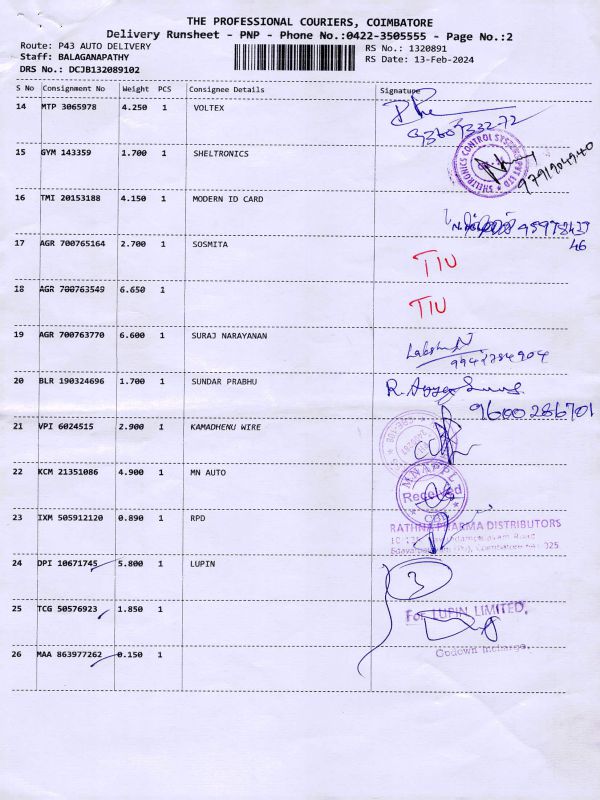 THE PROFESSIONAL COURIERS, COIMBATORE
Delivery Runsheet - PNP - Phone No.:0422-3505555 - Page No.:2
Route: P43 AUTO DELIVERY RS No.: 1320891
Staff: BALAGANAPATHY RS Date: 13-Feb-2024
DRS No.: DCJB132089102
S No Consignment No Weight PCS Consignee Details Signature
14 MTP 3065978 4.250 1 VOLTEX
15 GYM 143359 1.700 1 SHELTRONICS SHELTRONICS CONTROL SYSTEMS PVT LTD 9791904940
16 TMI 20153188 4.150 1 MODERN ID CARD
17 AGR 700765164 2.700 1 SOSMITA TIU
18 AGR 700763549 6.650 1 TIU
19 AGR 700763770 6.600 1 SURAJ NARAYANAN
20 BLR 190324696 1.700 1 SUNDAR PRABHU 9600286701
21 VPI 6024515 2.900 1 KAMADHENU WIRE
22 KCM 21351086 4.900 1 MN AUTO MNAPPL Received
23 IXM 505912120 0.890 1 RPD RATHNA PHARMA DISTRIBUTORS
24 DPI 10671745 5.800 1 LUPIN 3
25 TCG 50576923 1.850 1 For LUPIN LIMITED,
Godown Incharge.
26 MAA 863977262 0.150 1